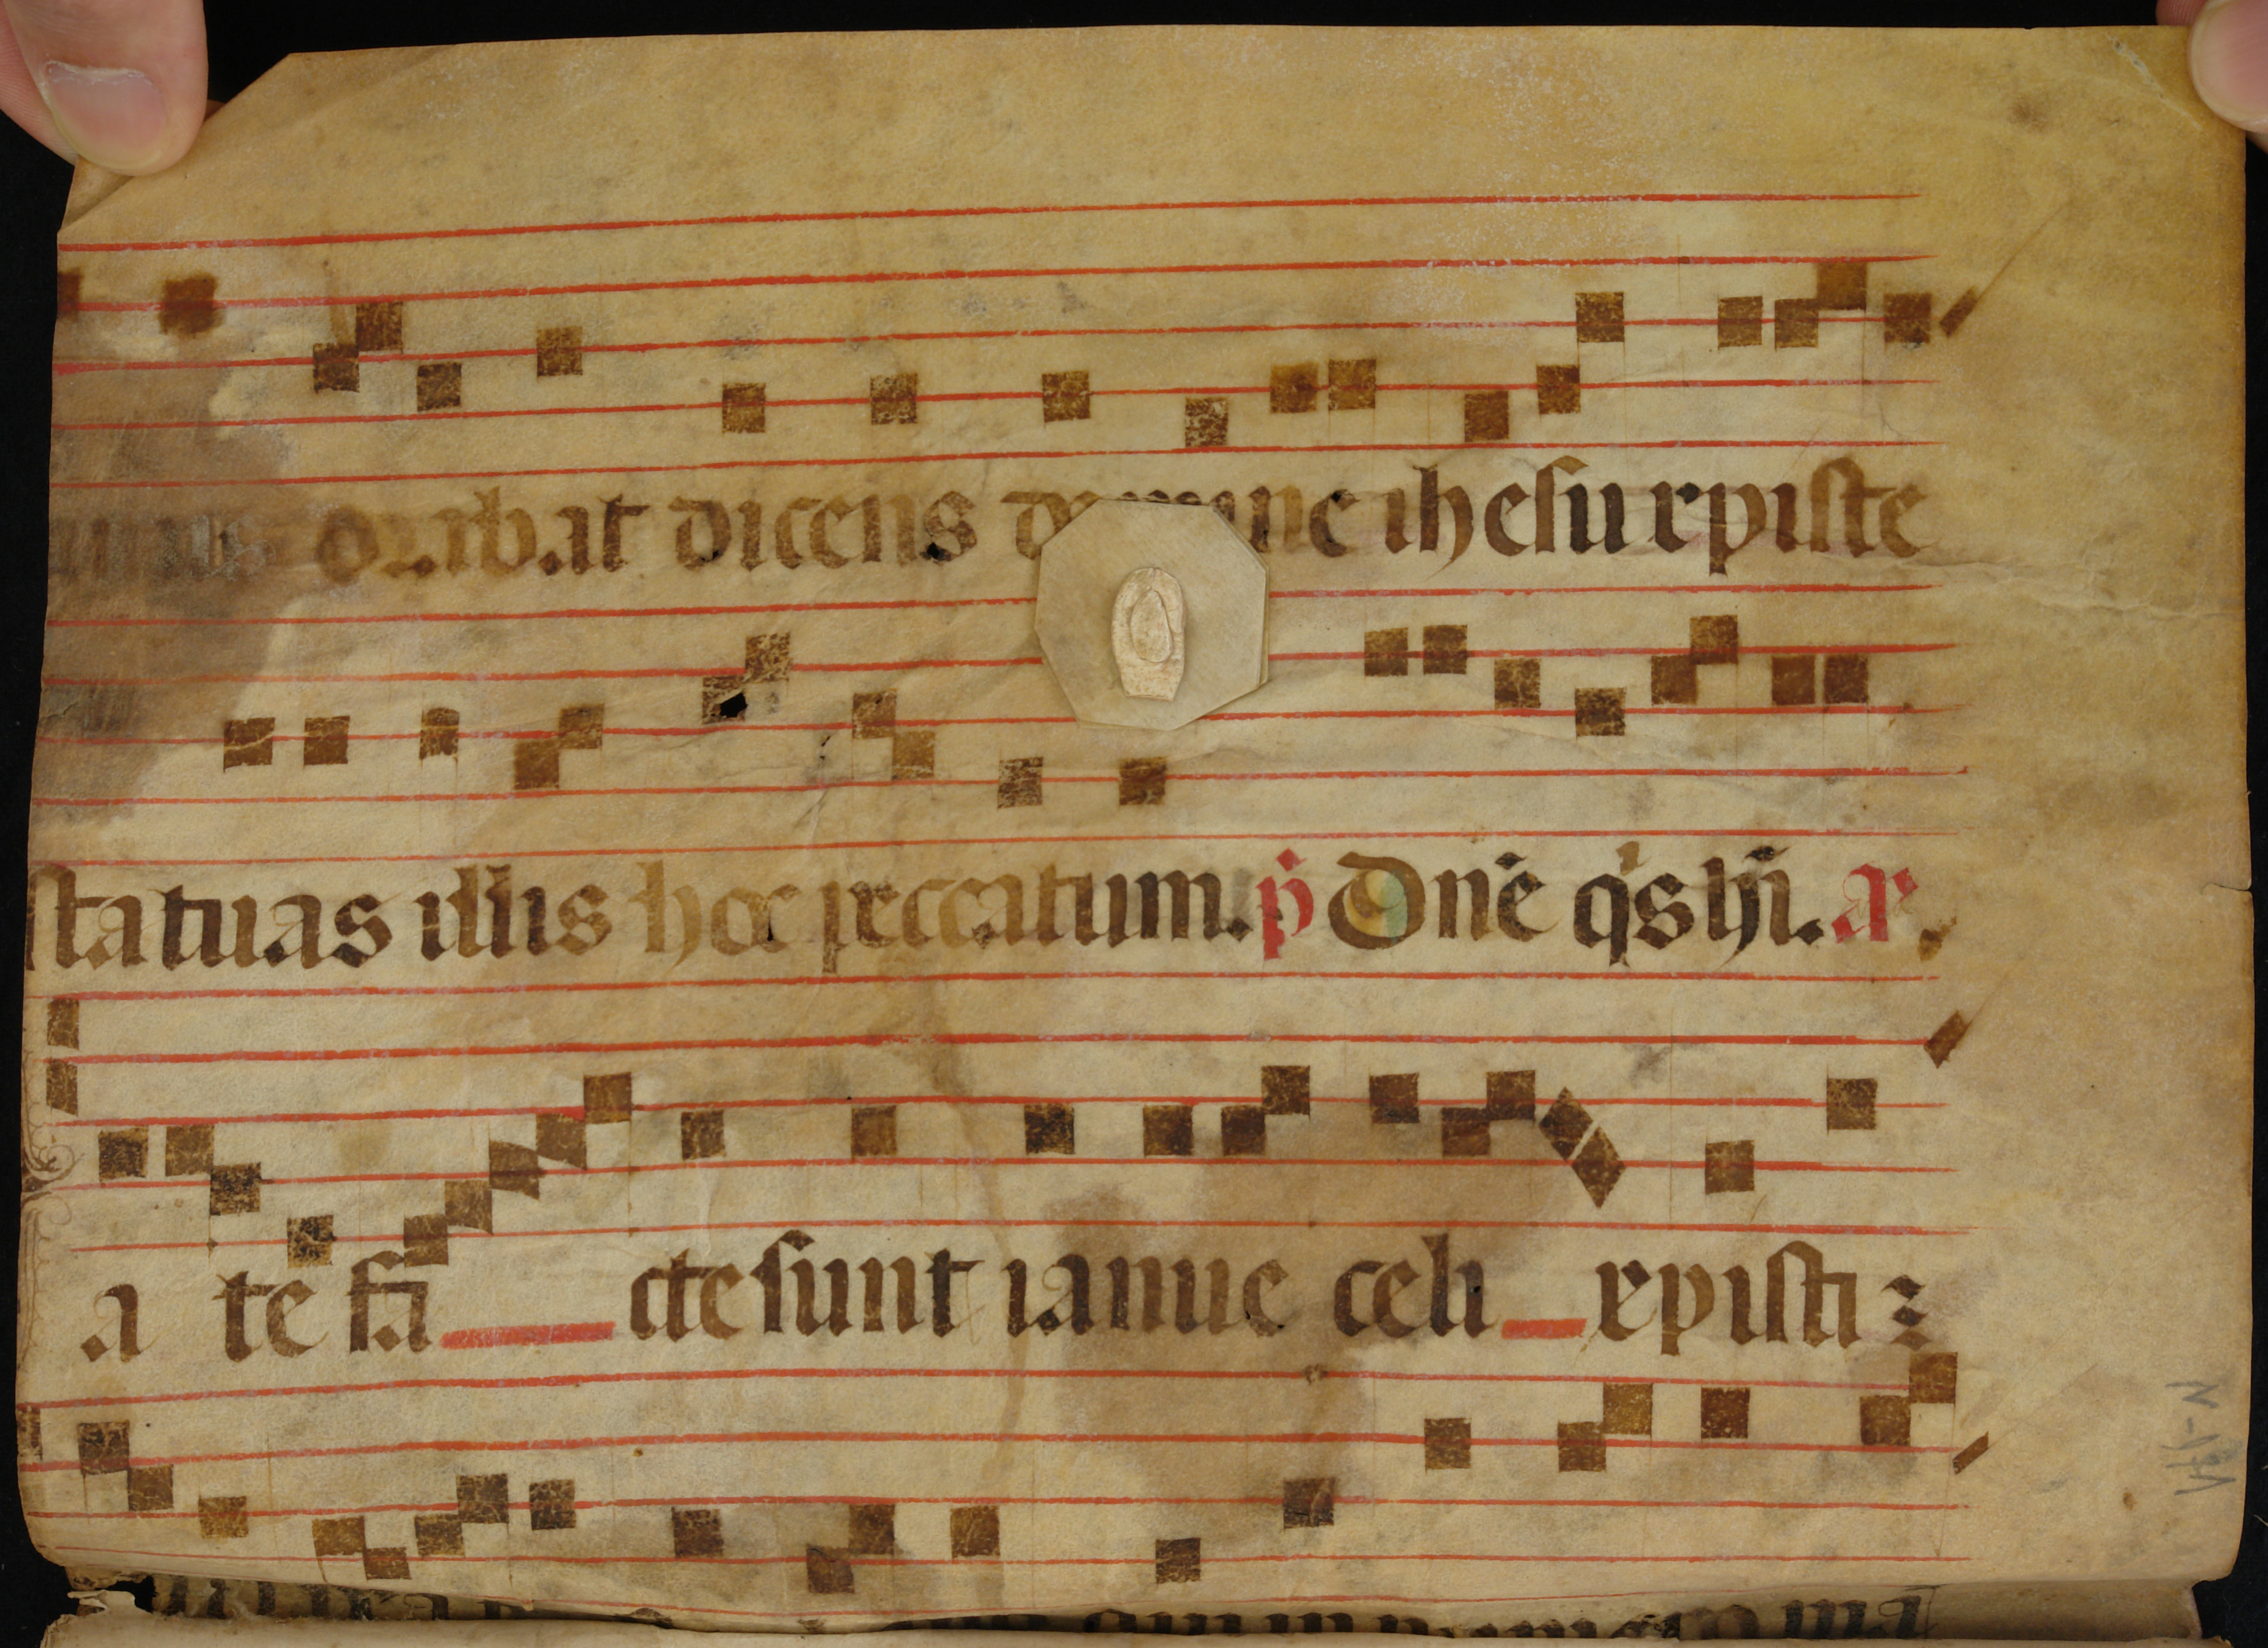 orabat dicens domine ihesu xpiste
statuas illis hoc peccatum. p̄ Dn̄e q's hn̄i. a
a te fa cte sunt ianue celi xpisti